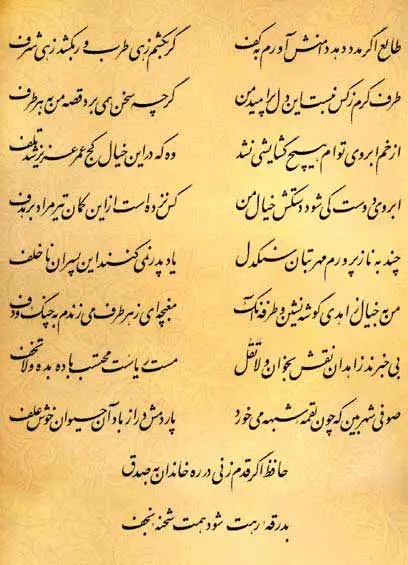 طالع اگر مدد دهد دامنش آورم به کف گر بکشم زهی طرب ور بکشد زهی شرف
طرف کرم ز کس نبست این دل پر امید من گرچه سخن همی برد قصه من به هر طرف
از خم ابروی توام هیچ گشایشی نشد وه که در این خیال کج عمر عزیز شد تلف
ابروی دوست کی شود دستکش خیال من کس نزده است از این کمان تیر مراد بر هدف
چند به ناز پرورم مهر بتان سنگدل یاد پدر نمی کنند این پسران ناخلف
من به خیال زاهدی گوشه نشین و طرفه آنک مغبچه ای ز هر طرف می زندم به چنگ و دف
بی خبرند زاهدان نقش بخوان و لا تقل مست ریاست محتسب باده بده و لا تخف
صوفی شهر بین که چون لقمه شبهه می خورد پاردمش دراز باد آن حیوان خوش علف
حافظ اگر قدم زنی در ره خاندان به صدق
بدرقه رهت شود همت شحنه نجف